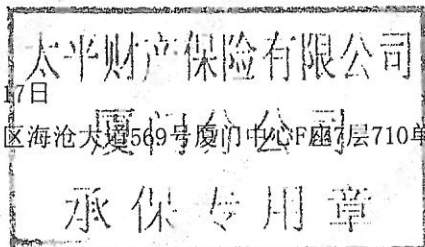 太平财产保险有限公司
17日
厦门分公司
区海沧大道569号厦门中心F座7层710单
承保专用章